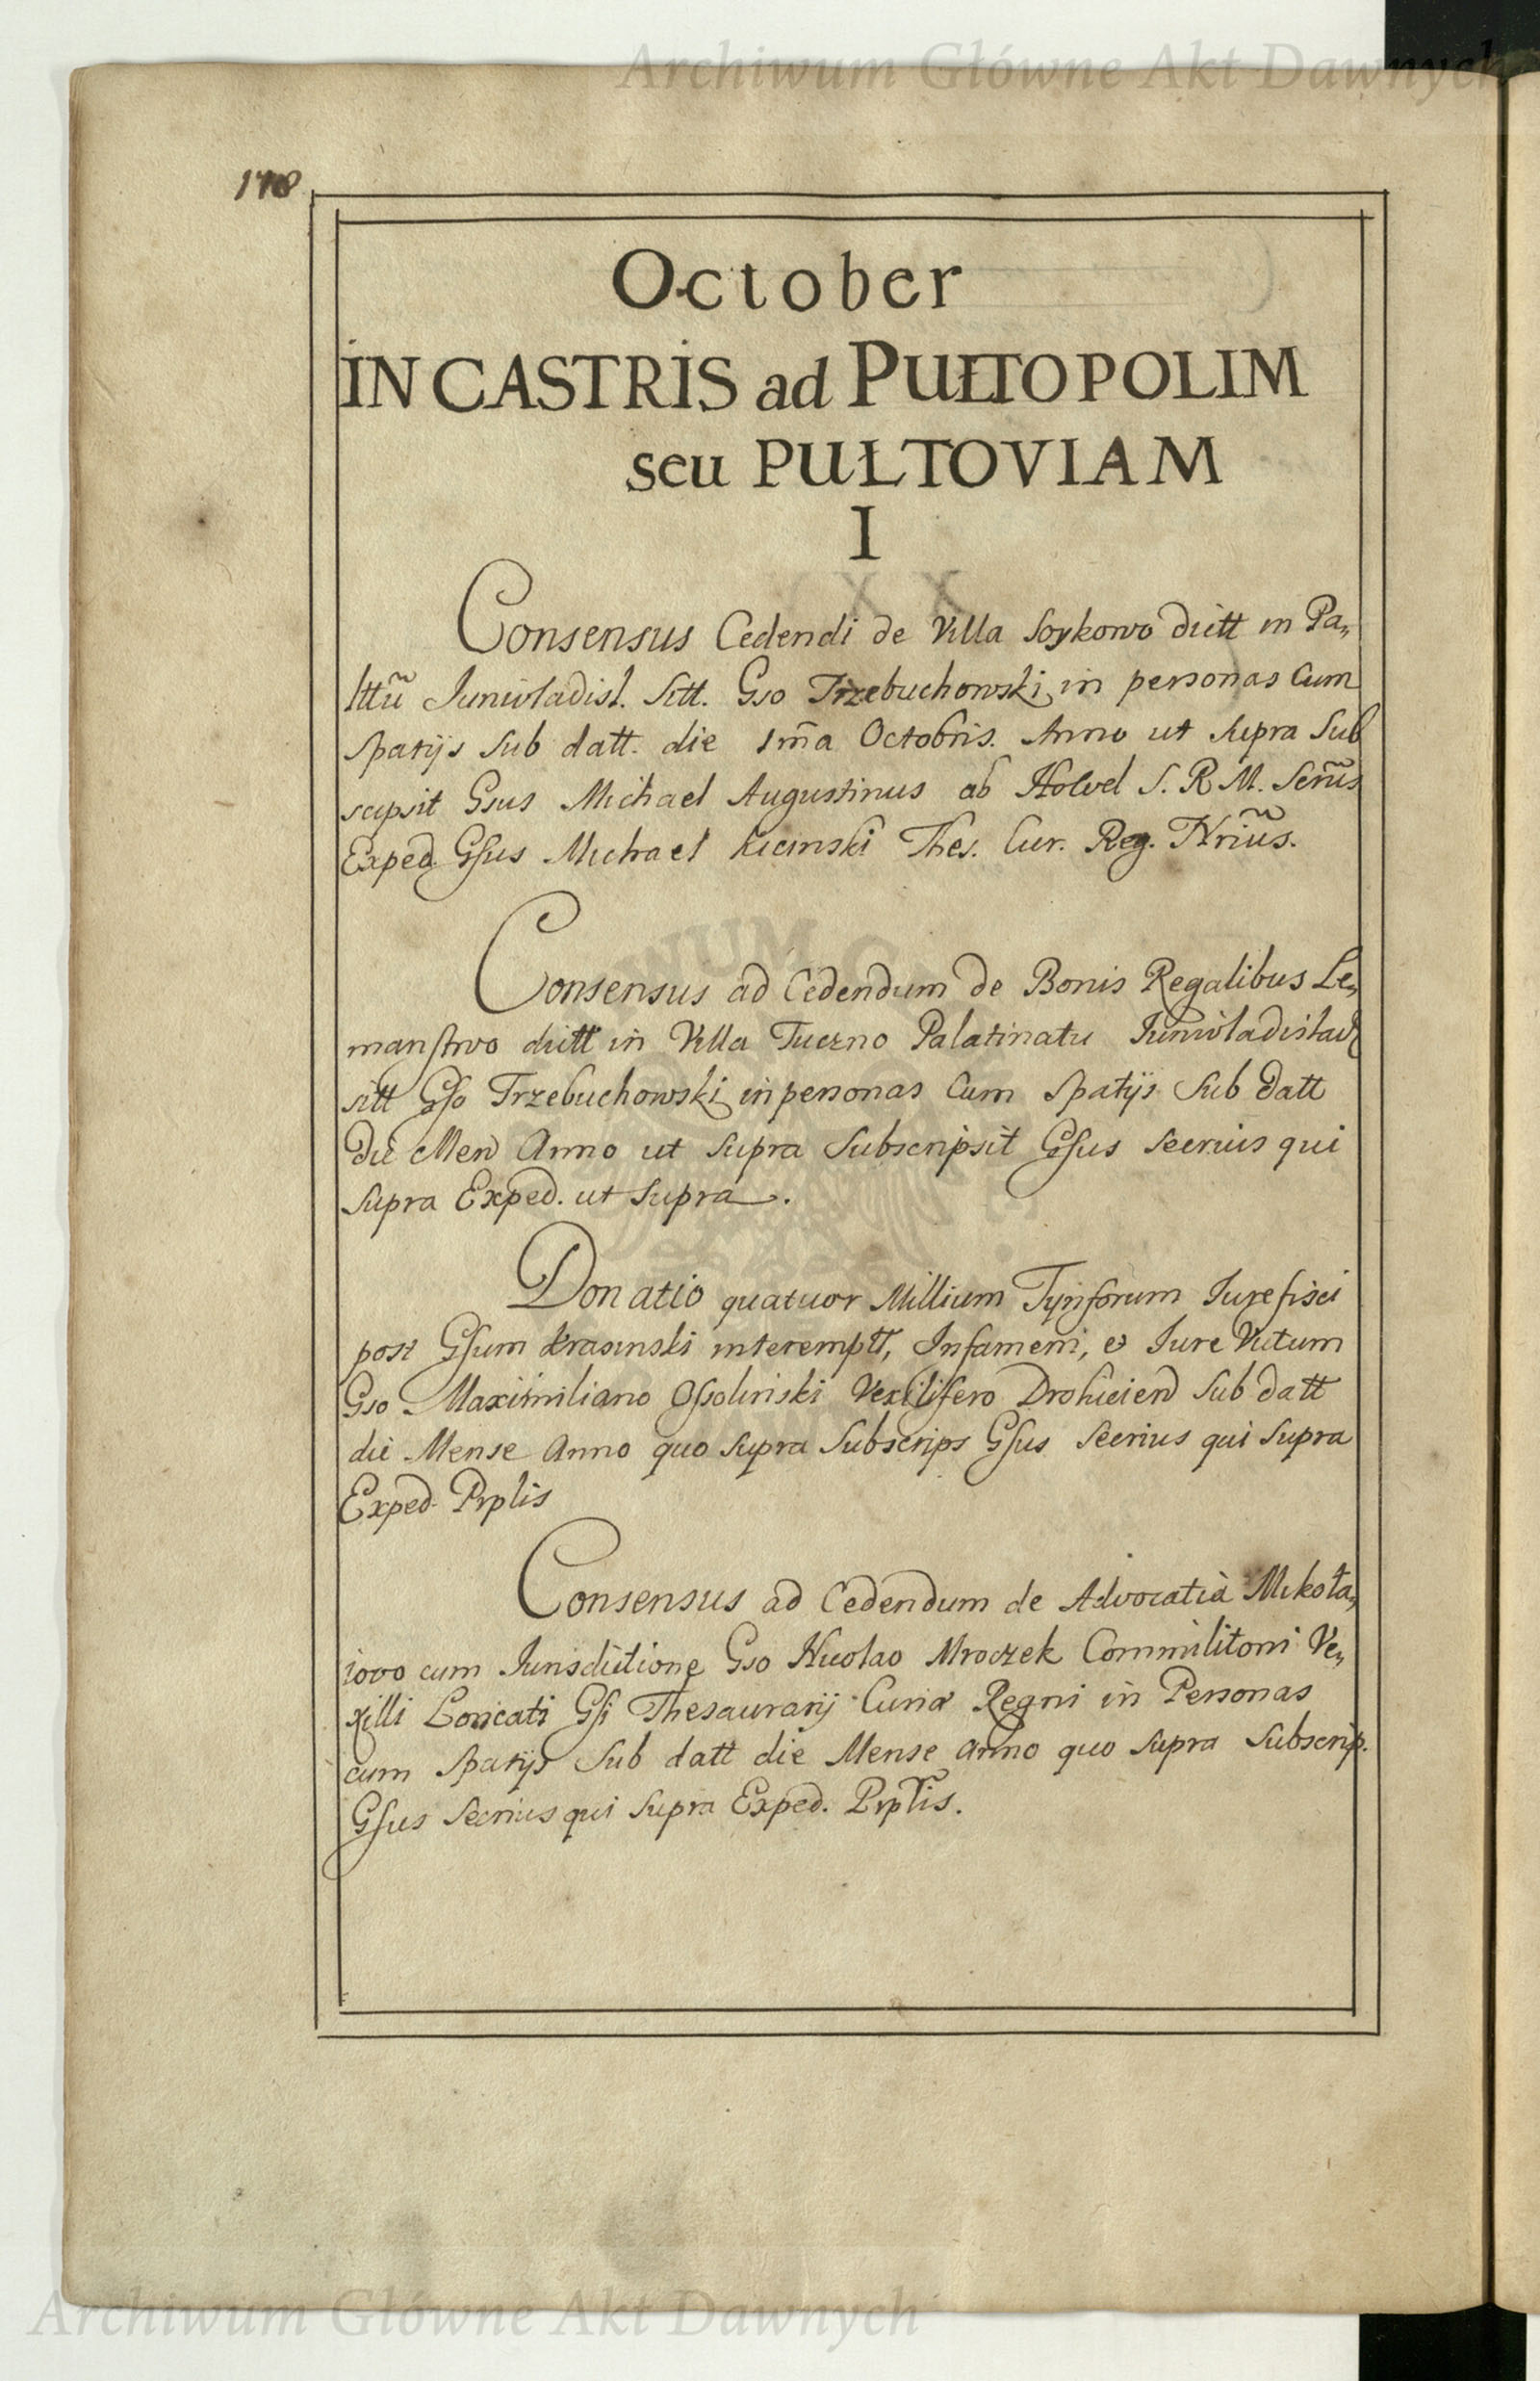 Archiwum Główne Akt Dawnych
178
October
IN CASTRIS ad PUŁTOPOLIM
seu PUŁTOVIAM
I
Consensus Cedendi de Villa Soykowo dictt in Pa„
lttũ Iunivladisl. Sitt. Gso Trzebuchowski in personas Cum
Spatijs Sub datt. die 1m̃a Octobris. Anno ut Supra Sub
scripsit Gsus Michael Augustinus ab Holvel S. R. M. Secrĩus
Exped. Gsus Michael Kicinski Thes. Cur. Reg. Ntrĩus.
Consensus ad Cedendum de Bonis Regalibus Le„
manstwo dictt in Villa Tuczno Palatinatu Iunivladislav
sitt Gso Trzebuchowski in personas Cum Spatijs Sub datt
Die Men Anno ut Supra Subscripsit Gsus Secrius qui
Supra Exped. ut Supra.
Donatio quatuor Millium Tynforum Iure fisci
post Gsum Krasinski interemptt, Infamem, et Iure Victum
Gso Maximiliano Ossolinski Vexilifero Drohicien Sub datt
die Mense Anno quo Supra Subscrips Gsus Secrius qui Supra
Exped. Prplis
Consensus ad Cedendum de Advocatia Mikoła„
iovo cum Iurisdictione Gso Nicolao Mroczek Commilitoni Ve„
xilli Loricati Gsi Thesaurarij Curiæ Regni in Personas
cum Spatijs Sub datt die Mense Anno quo Supra Subscrip.
Gsus Secrius qui Supra Exped. Prpl̃is.
Archiwum Główne Akt Dawnych